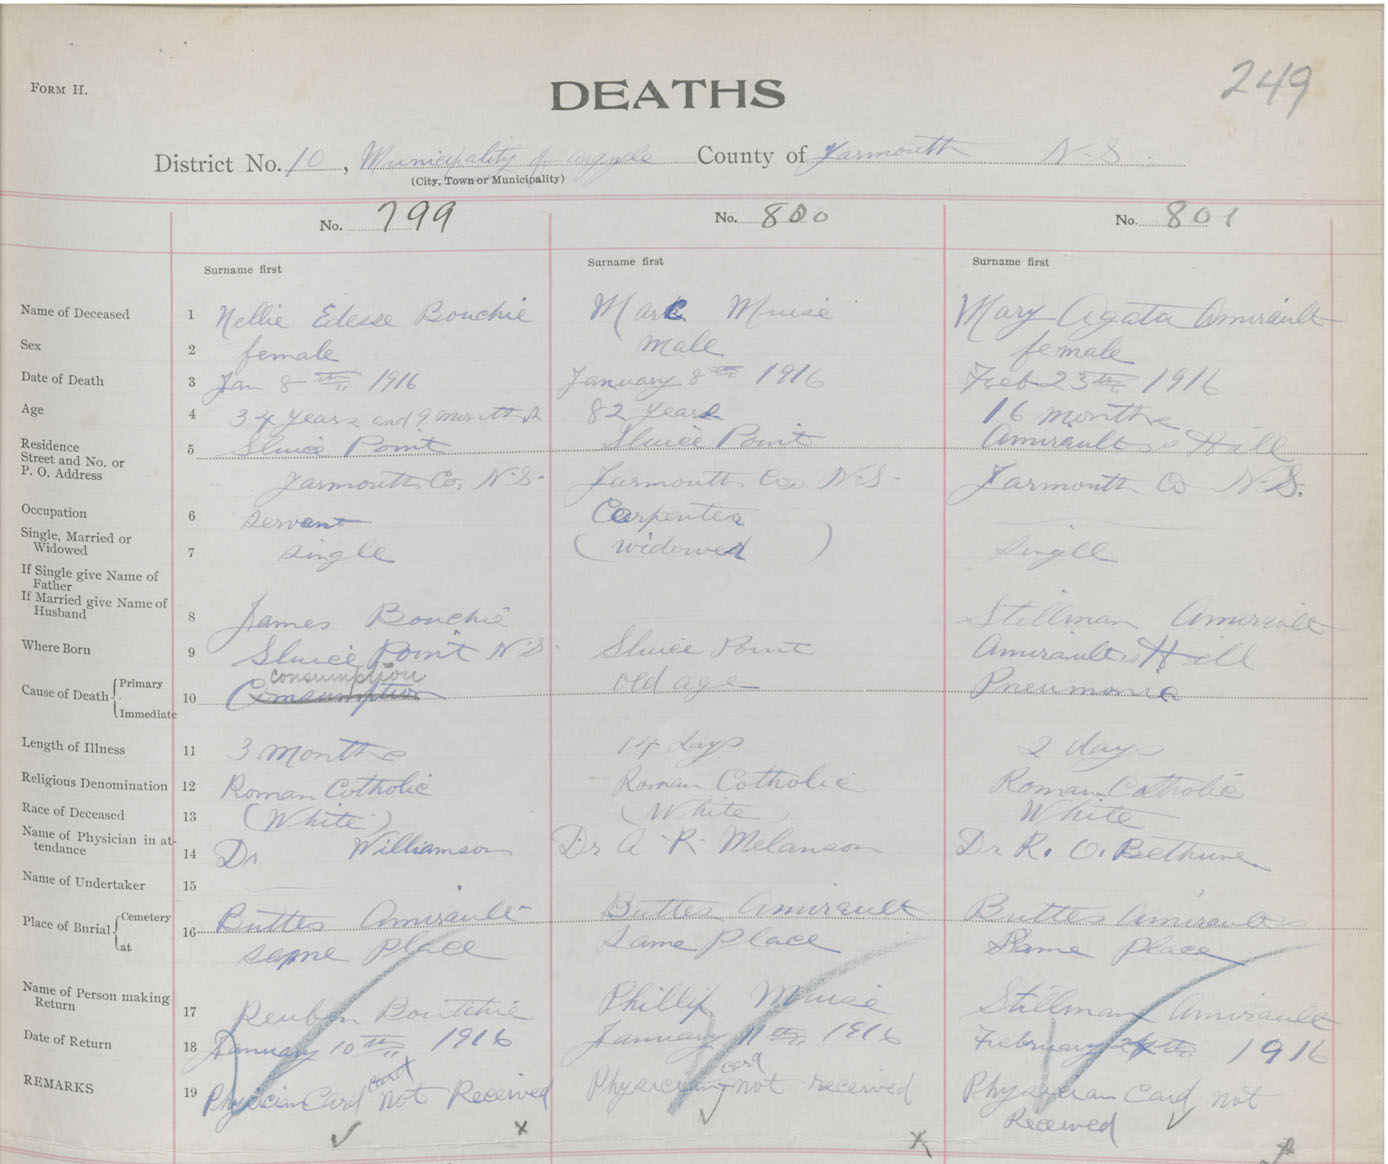 FORM H.
DEATHS
249
District No. 10, Municipality of Argyle County of Yarmouth N.S.
(City, Town or Municipality)
No. 799 No. 800 No. 801
Surname first Surname first Surname first
Name of Deceased 1 Nellie Edesse Bouchie Marc Muise Mary Agata Amirault
Sex 2 female male female
Date of Death 3 Jan 8th 1916 January 8th 1916 Feb 23th 1916
Age 4 34 years and 9 months 82 years 16 months
Residence
Street and No. or
P. O. Address 5 Sluice Point Sluice Point Amiraults Hill
Yarmouth Co, N.S. Yarmouth Co, N.S. Yarmouth Co N.S.
Occupation 6 servant Carpenter
Single, Married or
Widowed 7 single (widowed) singll
If Single give Name of
Father
If Married give Name of
Husband 8 James Bouchie Stillman Amirault
Where Born 9 Sluice Point N.S. Sluice Point Amiraults Hill
consumption
Cause of Death { Primary Immediate 10 Comsumption old age Pneumonia
Length of Illness 11 3 months 14 days 2 days
Religious Denomination 12 Roman Cotholic Roman Cotholic Roman Catholic
Race of Deceased 13 (White) (White) White
Name of Physician in at-
tendance 14 Dr Williamson Dr A R Melanson Dr R. O. Bethune
Name of Undertaker 15
Place of Burial { Cemetery at 16 Buttes Amirault Buttes Amirault Buttes Amiraults
same place same place same place
Name of Person making
Return 17 Reuben Bouchie Phillip Muise Stillman Amirault
Date of Return 18 January 10th 1916 January 11th 1916 February 24th 1916
REMARKS 19 Physician Card card not Received Physician card not received Physician Card not
Received